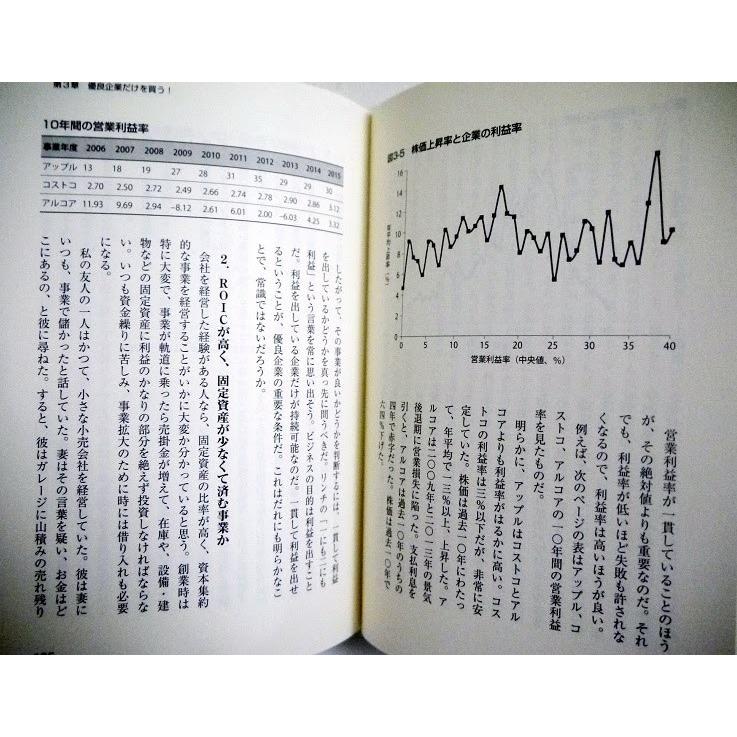 図3-5 株価上昇率と企業の利益率
年平均上昇率(%)
16
14
12
10
8
6
4
2
0
0 5 10 15 20 25 30 35 40
営業利益率(中央値、%)
営業利益率が一貫していることのほう
が、その絶対値よりも重要なのだ。それ
でも、利益率が低いほど失敗も許されな
くなるので、利益率は高いほうが良い。
例えば、次のページの表はアップル、コ
ストコ、アルコアの一〇年間の営業利益
率を見たものだ。
明らかに、アップルはコストコとアル
コアよりも利益率がはるかに高い。コス
トコの利益率は三%以下だが、非常に安
定していた。株価は過去一〇年にわたっ
て、年平均で一三%以上、上昇した。ア
ルコアは二〇〇九年と二〇一三年の景気
後退期に営業損失に陥った。支払利息を
引くと、アルコアは過去一〇年のうちの
四年で赤字だった。株価は過去一〇年で
六四%下げた。
第3章 優良企業だけを買う!
10年間の営業利益率
事業年度 2006 2007 2008 2009 2010 2011 2012 2013 2014 2015
アップル 13 18 19 27 28 31 35 29 29 30
コストコ 2.70 2.50 2.72 2.49 2.66 2.74 2.78 2.90 2.86 3.12
アルコア 11.93 9.69 2.94 -8.12 2.61 6.01 2.00 -6.03 4.25 3.32
したがって、その事業が良いかどうかを判断するには、一貫して利益
を出しているかどうかを真っ先に問うべきだ。リンチの「一にも二にも
利益」という言葉を常に思い出そう。ビジネスの目的は利益を出すこと
だ。利益を出している企業だけが持続可能なのだ。一貫して利益を出せ
るということが、優良企業の重要な条件だ。これはだれにも明らかなこ
とで、常識ではないだろうか。
2.ROICが高く、固定資産が少なくて済む事業か
会社を経営した経験がある人なら、固定資産の比率が高く、資本集約
的な事業を経営することがいかに大変か分かっていると思う。創業時は
特に大変で、事業が軌道に乗ったら売掛金が増えて、在庫や、設備・建
物などの固定資産に利益のかなりの部分を絶えず投資しなければならな
い。いつも資金繰りに苦しみ、事業拡大のために時には借り入れも必要
になる。
私の友人の一人はかつて、小さな小売会社を経営していた。彼は妻に
いつも、事業で儲かったと話していた。妻はその言葉を疑い、お金はど
こにあるの、と彼に尋ねた。すると、彼はガレージに山積みの売れ残り